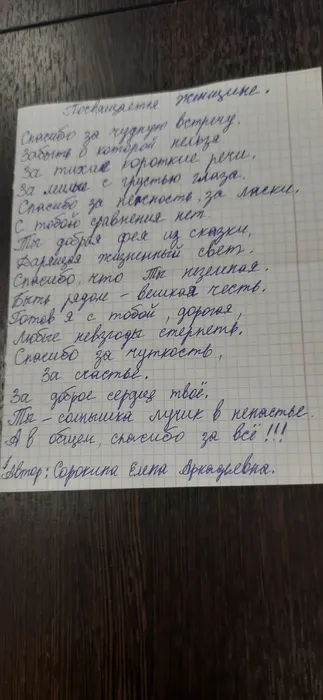 Посвящается женщине.
Спасибо за чудную встречу.
Забыть о которой нельзя
За тихие короткие речи.
За милые с грустью глаза.
Спасибо за нежность, за ласки.
С тобою сравнения нет.
Ты добрая фея из сказки,
Дарящая жизненный свет.
Спасибо, что Ты неземная.
Быть рядом – великая честь.
Готов я с тобой, дорогая,
Любые невзгоды стерпеть.
Спасибо за чуткость,
За счастье.
За доброе сердце твоё.
Ты – солнышка лучик в ненастье.
А в общем, спасибо за всё!!!
Автор: Сорокина Елена Аркадьевна.